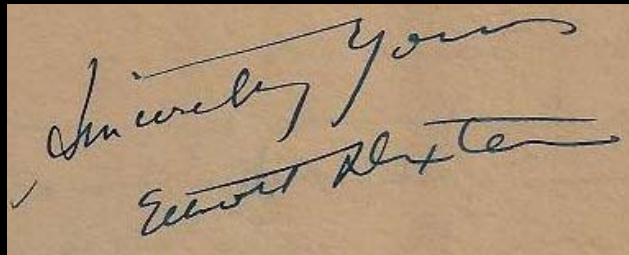 Sincerely Yours
Elliott Dexter